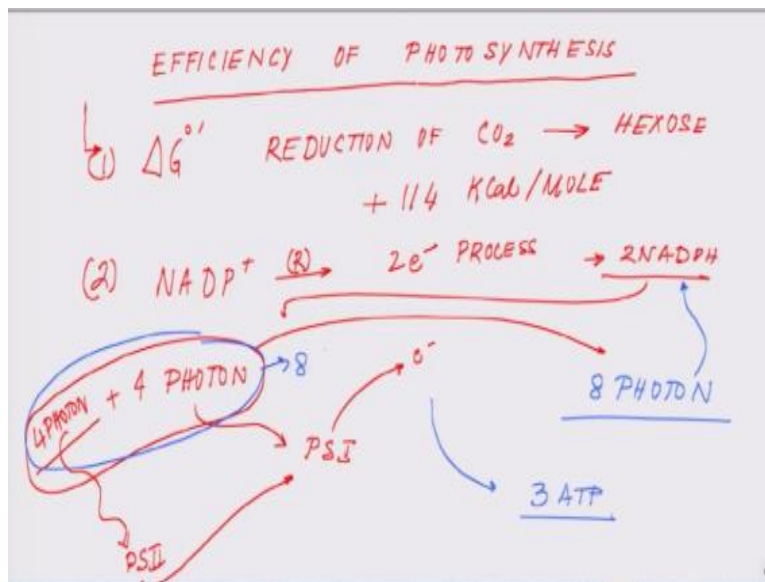 EFFICIENCY OF PHOTOSYNTHESIS
(1) ΔG°' REDUCTION OF CO₂ → HEXOSE
+ 114 KCal/MOLE
(2) NADP⁺ (R)→ 2e⁻ PROCESS → 2NADPH
4 PHOTON + 4 PHOTON → 8
e⁻
8 PHOTON
PSI
3 ATP
PSII